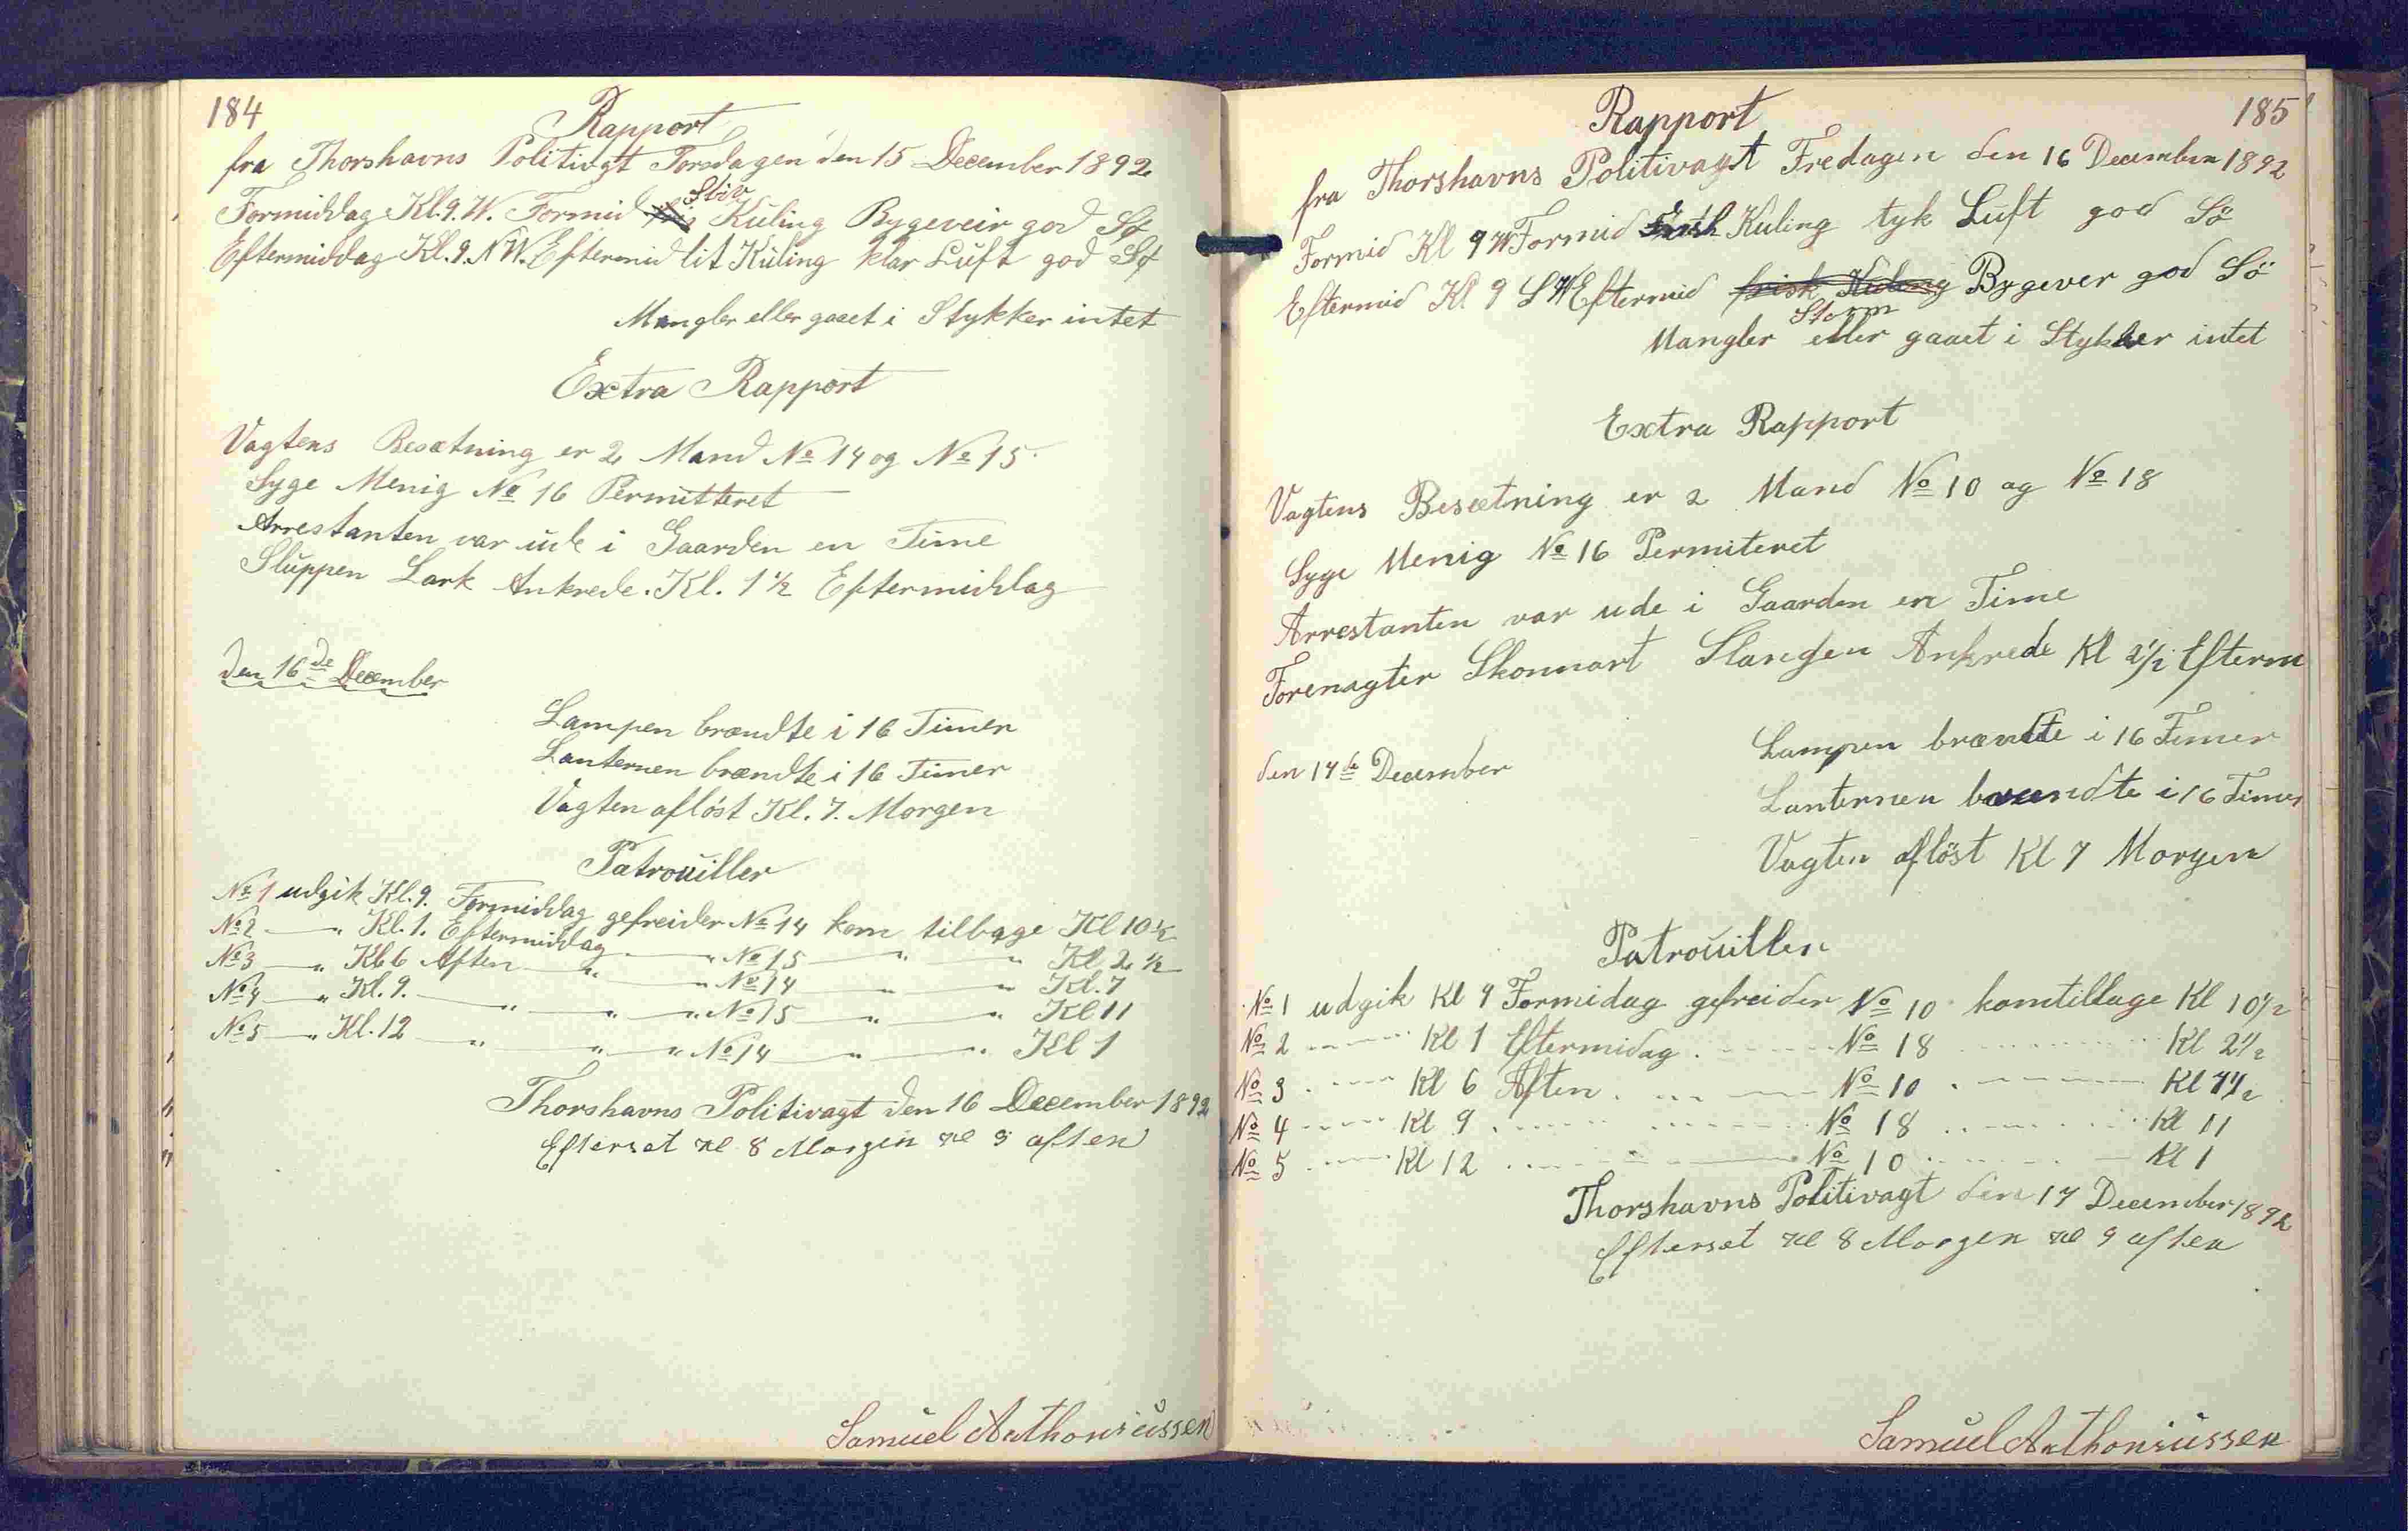 184
Rapport
fra Thorshavns Politivgt Torsdagen den 15 December 1892
Stiv
Formiddag Kl. 9. W. Formid Kuling Bygeveir god Sø
Eftermiddag Kl. 9. NW. Eftermid lit Kuling klar Luft god Sø
Mangler eller gaaet i Stykker intet
Extra Rapport
Vagtens Besætning er 2 Mand No 14 og No 15.
Syge Menig No 16 Permitteret
Arrestanten var ude i Gaarden en Time
Sluppen Lark Ankrede. Kl. 1 1/2 Eftermiddag
den 16de December
Lampen brændte i 16 Timer
Lanternen brændte i 16 Timer
Vagten afløst Kl. 7. Morgen
Patrouiller
No 1 udgik Kl. 9. Formiddag gefreider No 14 kom tilbage Kl 10 1/2
No 2 — " Kl. 1. Eftermiddag — " No 15 — " — " Kl 2 1/2
No 3 — " Kl. 6 Aften — " — " No 14 — " — " Kl. 7
No 4 — " Kl. 9. — " — " — " No 15 — " — " Kl 11
No 5 — " Kl. 12 — " — " — " No 14 — " — " Kl 1
Thorshavns Politivagt den 16 December 1892
Efterset Kl 8 Morgen Kl 9 aften
Samuel Anthoniussen
185
Rapport
fra Thorshavns Politivagt Fredagen den 16 December 1892
Formid Kl 9 W Formid frisk Kuling tyk Luft god Sö
Eftermid Kl 9 SW Eftermid frisk Kuling Bygever god Sö
Storm
Mangler eller gaaet i Stykker intet
Extra Rapport
Vagtens Besætning er 2 Mand No 10 og No 18
Syge Menig No 16 Permiteret
Arrestanten var ude i Gaarden en Time
Forenagter Skonnart Slangen Ankrede Kl 2 1/2 Efterm
den 17de December
Lampen brændte i 16 Timer
Lanternen brændte i 16 Timer
Vagten aflöst Kl 7 Morgen
Patrouiller
No 1 udgik Kl 9 Formidag gefreider No 10 komtillage Kl 10 1/2
No 2 Kl 1 Eftermidag No 18 Kl 2 1/2
No 3 Kl 6 Aften No 10 Kl 7 1/2
No 4 Kl 9 No 18 Kl 11
No 5 Kl 12 No 10 Kl 1
Thorshavns Politivagt den 17 December 1892
Efterset Kl 8 Morgen Kl 9 aften
Samuel Anthoniussen